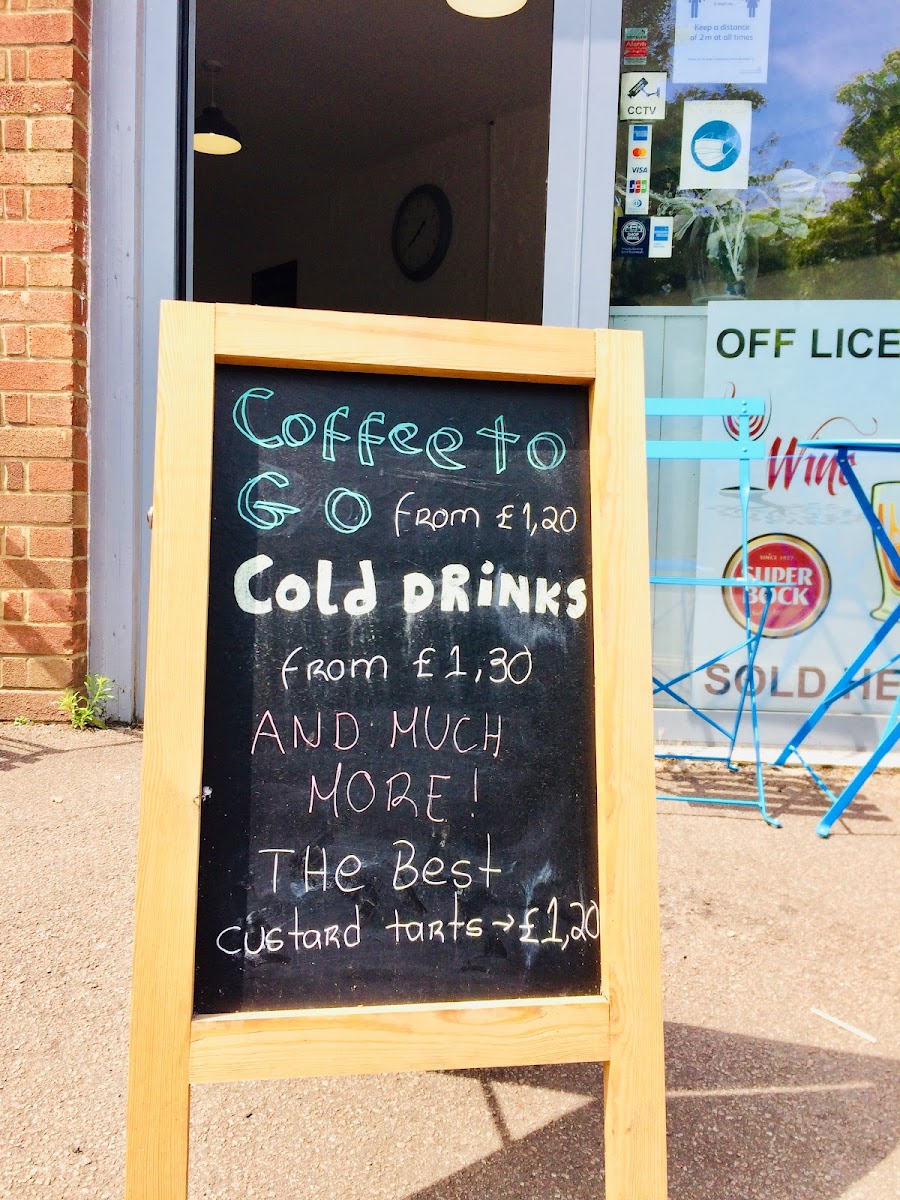 Keep a distance
of 2m at all times
CCTV
VISA
JCB
OFF LICE
Wine
SINCE 1927
SUPER
BOCK
SOLD HE
Coffee to
Go FROM £1,20
Cold DRINKS
FROM £1,30
AND MUCH
MORE!
THe Best
custard tarts → £1,20